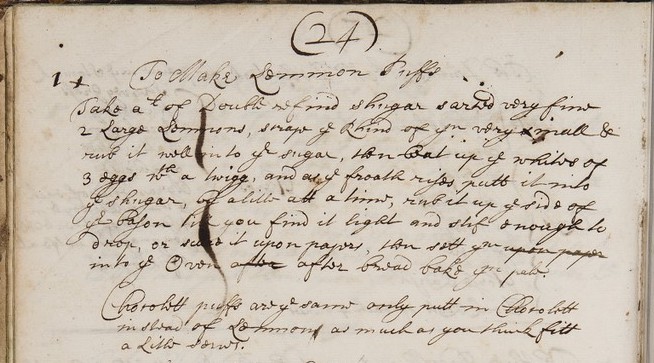 (24)
1 To Make Lemmon Puffs
Take a lb of Double refind shugar sarsed very fine
2 Large Lemmons, scrape ye Rhind of ym very small &
rub it well into ye sugar, then beat up ye whites of
3 eggs wth a twigg, and as ye froath rises putt it into
ye shugar, by a little att a time, rub it up ye side of
ye bason till you find it light and stif enough to
drop, or it upon papers, then sett ym upon paper
into ye Oven after after bread bake ym pale
Chocolett puffs are ye same only putt in Chocolett
instead of Lemmons as much as you think fitt
a Little serves.